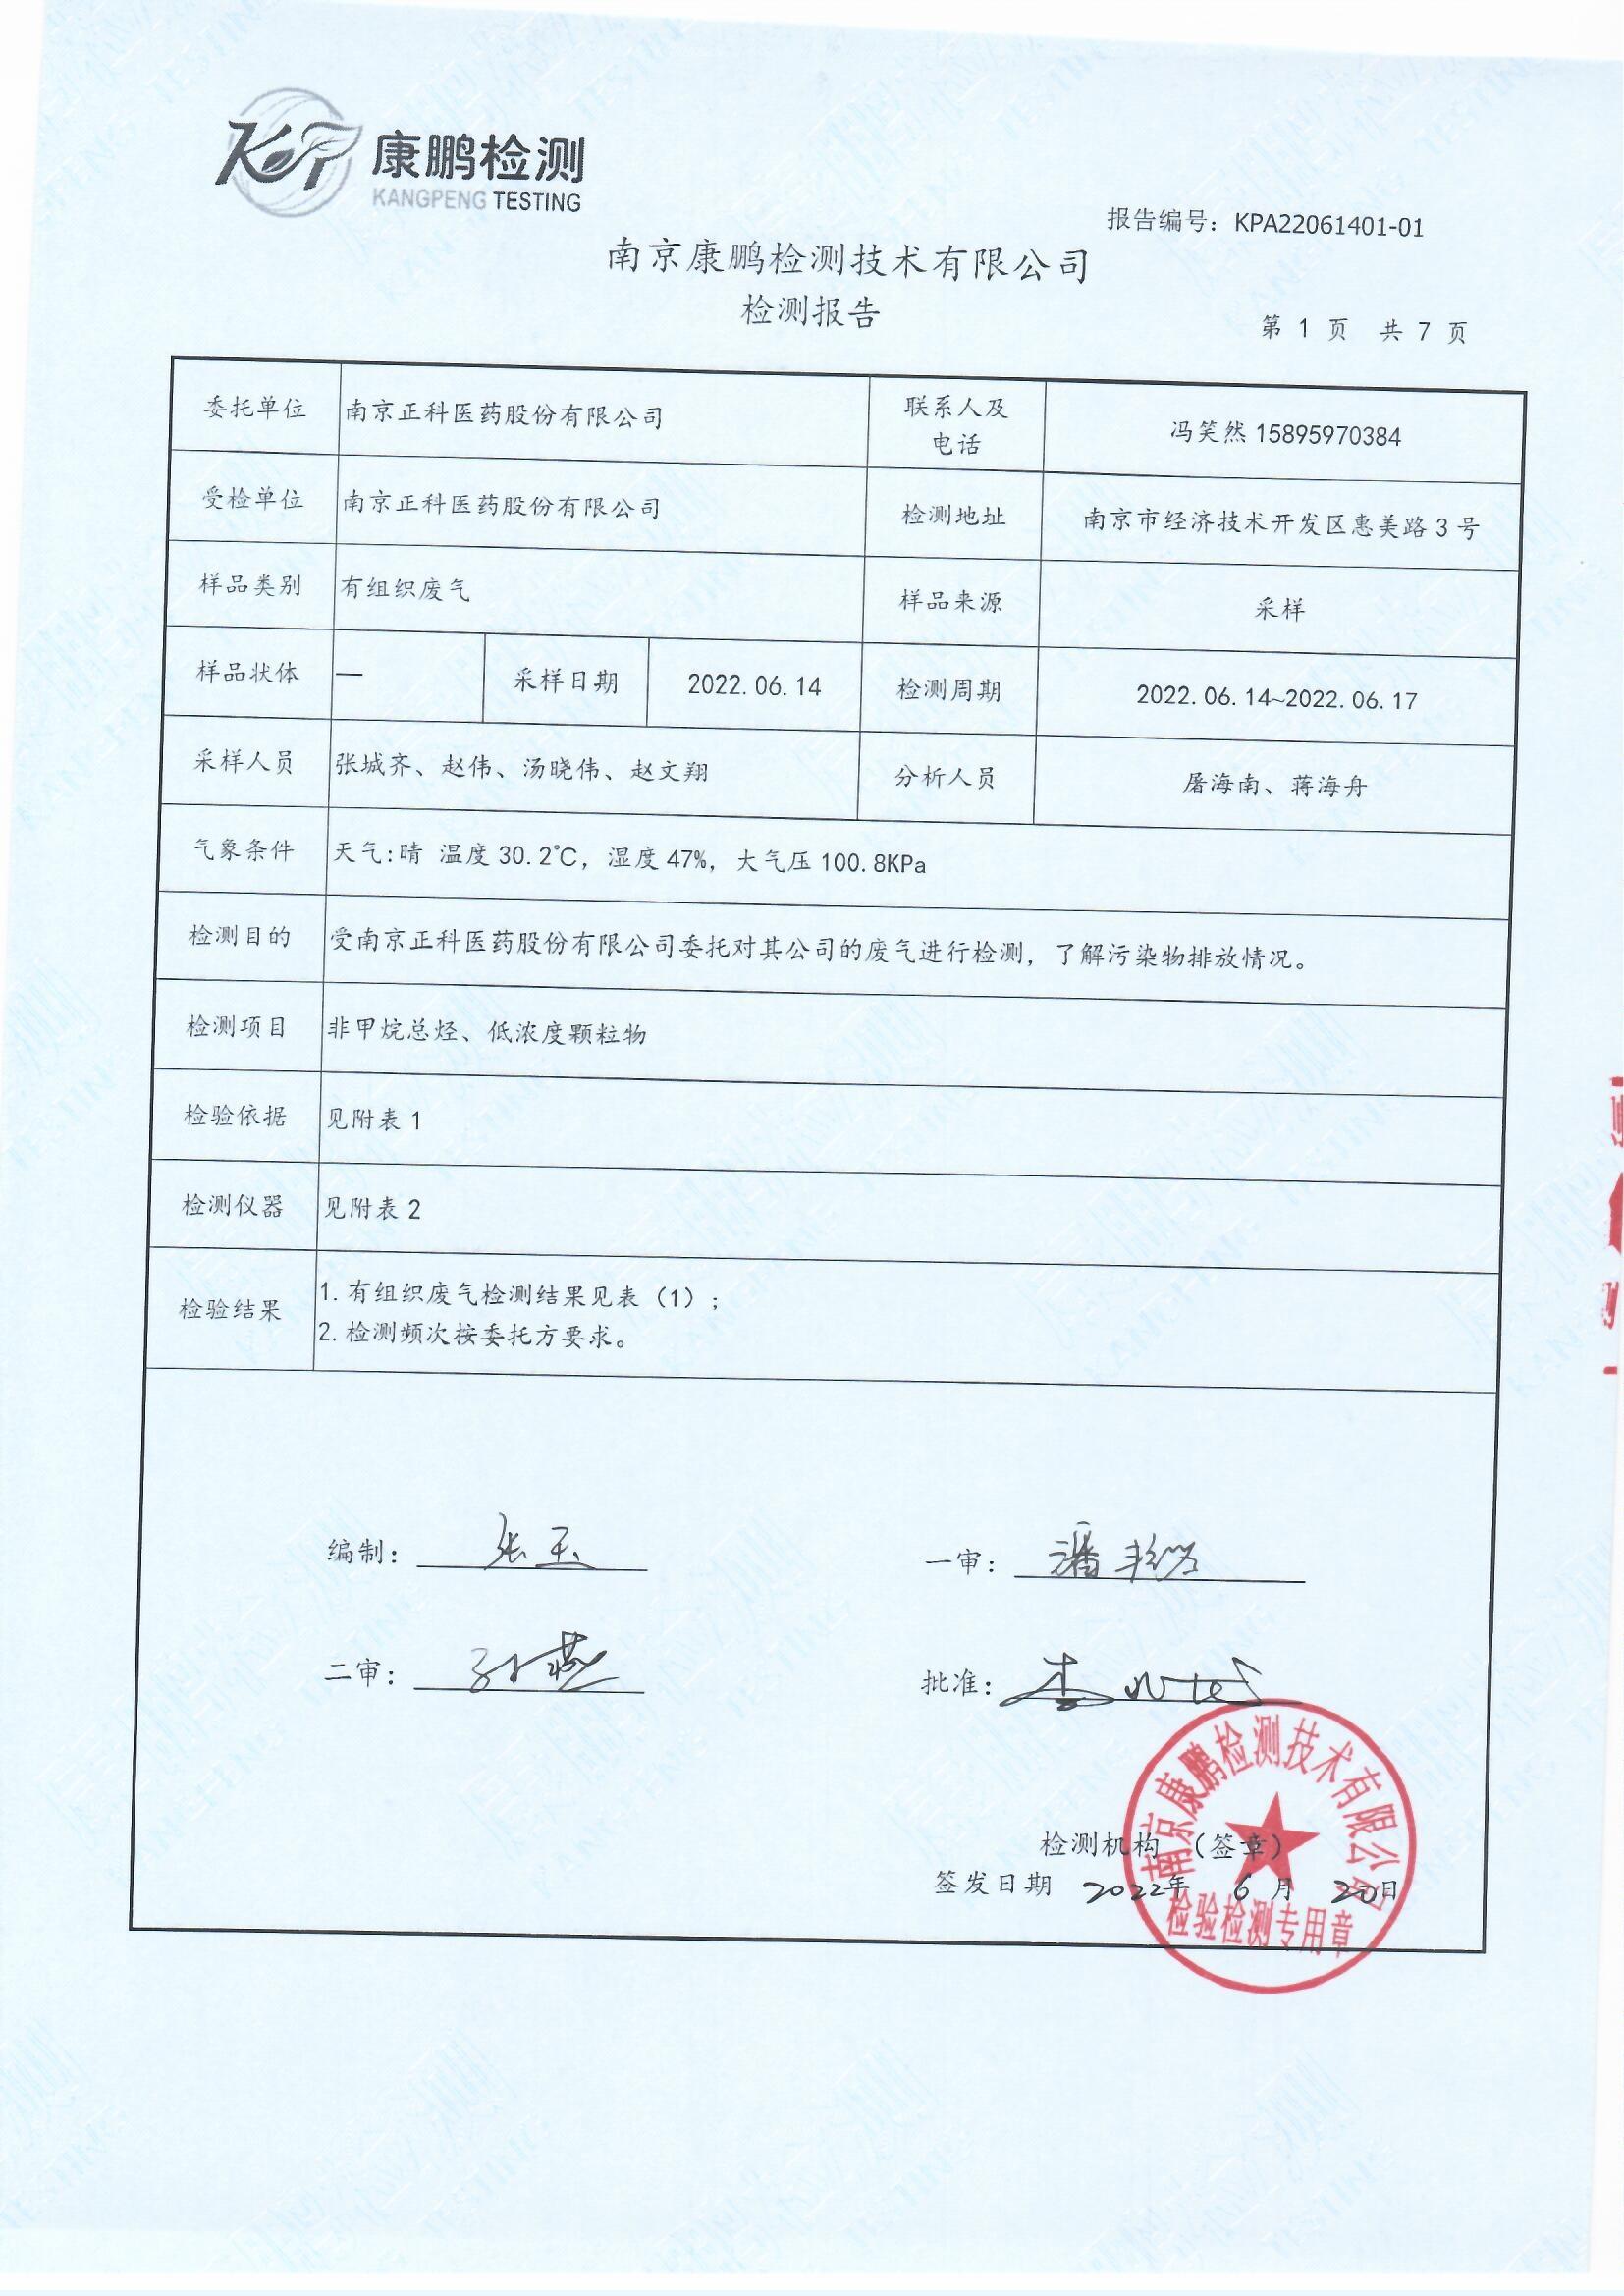 康鹏检测
KANGPENG TESTING
报告编号：KPA22061401-01
南京康鹏检测技术有限公司
检测报告
第 1 页 共 7 页
委托单位 南京正科医药股份有限公司 联系人及电话 冯笑然 15895970384
受检单位 南京正科医药股份有限公司 检测地址 南京市经济技术开发区惠美路 3 号
样品类别 有组织废气 样品来源 采样
样品状体 — 采样日期 2022.06.14 检测周期 2022.06.14~2022.06.17
采样人员 张城齐、赵伟、汤晓伟、赵文翔 分析人员 屠海南、蒋海舟
气象条件 天气:晴 温度 30.2℃，湿度 47%，大气压 100.8KPa
检测目的 受南京正科医药股份有限公司委托对其公司的废气进行检测，了解污染物排放情况。
检测项目 非甲烷总烃、低浓度颗粒物
检验依据 见附表 1
检测仪器 见附表 2
检验结果 1.有组织废气检测结果见表（1）；
2.检测频次按委托方要求。
编制： 张玉 一审： 潘
二审： 孙燕 批准： 李
南京康鹏检测技术有限公司
检测机构 （签章）
签发日期 2022年 6 月 20日
检验检测专用章